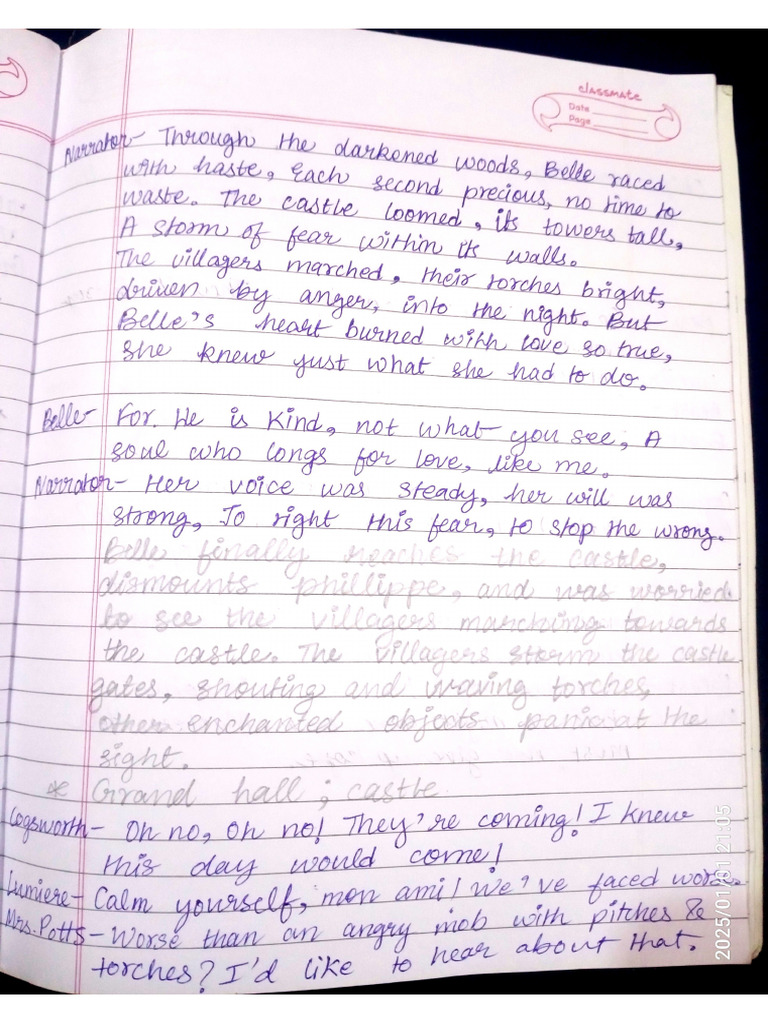 classmate
Date
Page
Narrator- Through the darkened woods, Belle raced
with haste, Each second precious, no time to
waste. The castle loomed, its towers tall,
A storm of fear within its walls.
The villagers marched, their torches bright,
driven by anger, into the night. But
Belle's heart burned with love so true,
she knew just what she had to do.
Belle- For. He is Kind, not what you see, A
soul who longs for love, like me.
Narrator- Her voice was steady, her will was
strong, To right this fear, to stop the wrong.
Belle finally reaches the castle,
dismounts phillippe, and was worried
to see the villagers marching towards
the castle. The villagers storm the castle
gates, shouting and waving torches,
other enchanted objects panic at the
sight.
* Grand hall ; castle
Cogsworth- Oh no, Oh no! They're coming! I knew
this day would come!
Lumiere- Calm yourself, mon ami! We've faced worse.
Mrs. Potts- Worse than an angry mob with pitches &
torches? I'd like to hear about that.
2025/01/01 21:05